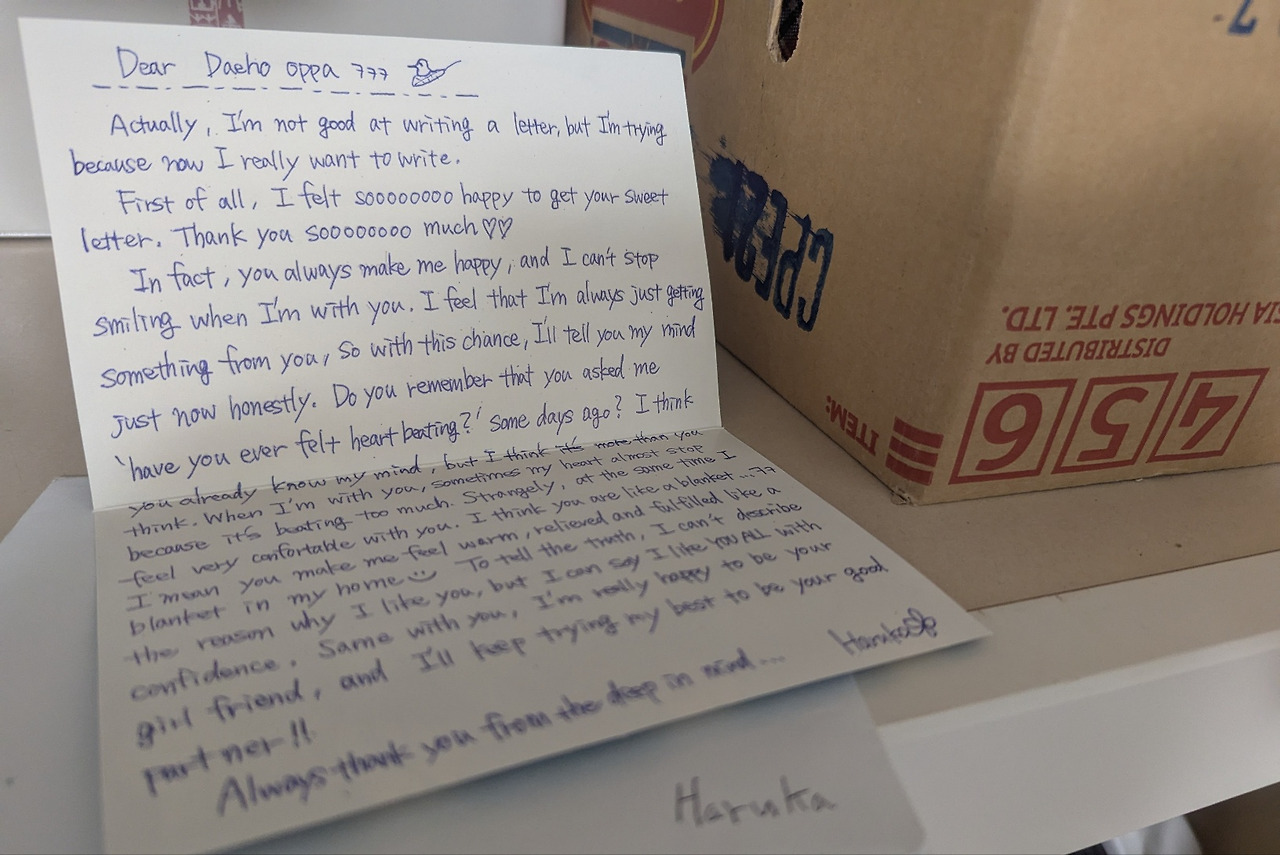 Dear Daeho oppa ㄱㄱㄱ
Actually, I'm not good at writing a letter, but I'm trying
because now I really want to write.
First of all, I felt soooooooo happy to get your sweet
letter. Thank you soooooooo much♡♡
In fact, you always make me happy, and I can't stop
smiling when I'm with you. I feel that I'm always just getting
something from you, so with this chance, I'll tell you my mind
just now honestly. Do you remember that you asked me
'have you ever felt heart beating?' some days ago? I think
you already know my mind, but I think it's more than you
think. When I'm with you, sometimes my heart almost stop
because it's beating too much. Strangely, at the same time I
feel very confortable with you. I think you are like a blanket...ㄱㄱ
I mean you make me feel warm, relieved and fulfilled like a
blanket in my home To tell the truth, I can't describe
the reason why I like you, but I can say I like YOU ALL with
confidence. Same with you, I'm really happy to be your
girl friend, and I'll keep trying my best to be your good
partner!!
Always thank you from the deep in mind...
Haruka
Haruka
ITEM:
456
DISTRIBUTED BY
IA HOLDINGS PTE. LTD.